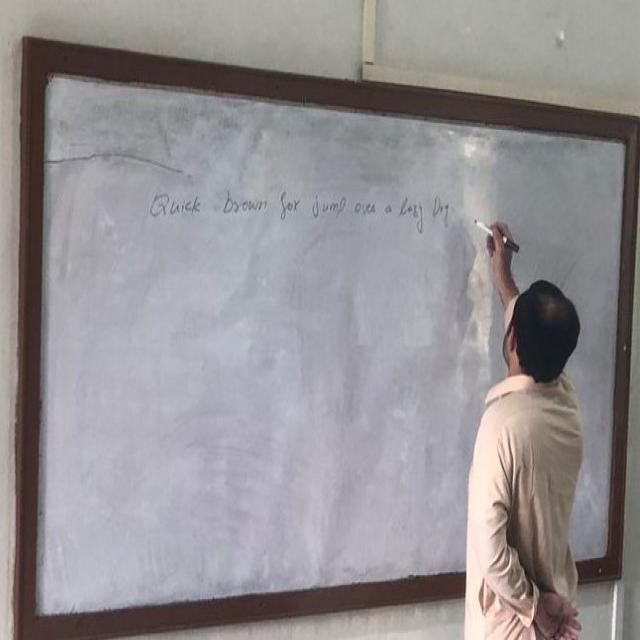 Quick brown fox jump over a lazy Dog